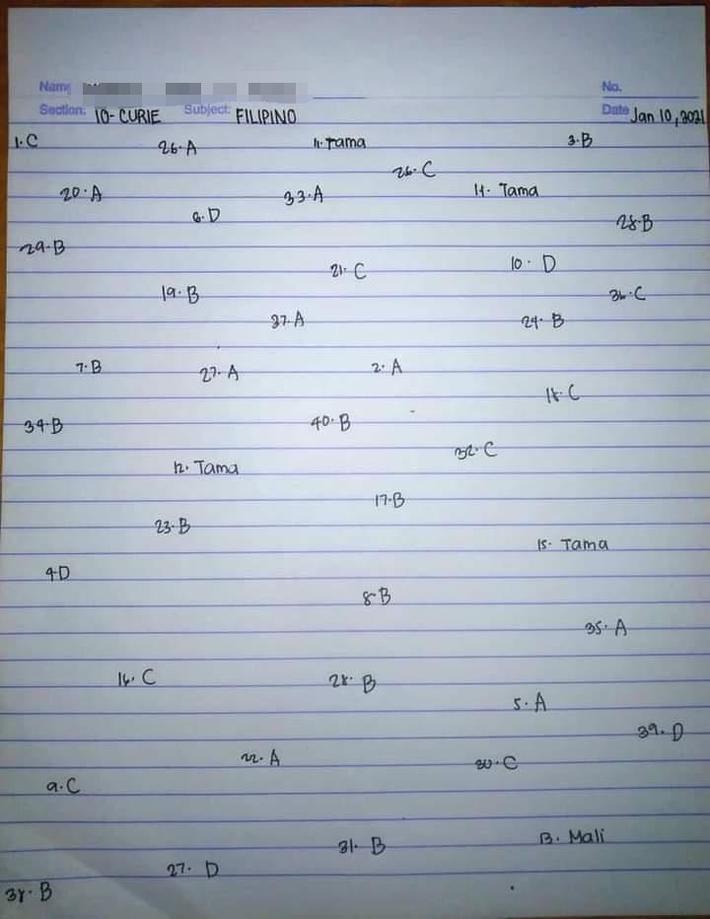 Name No.
Section: 10- CURIE Subject: FILIPINO Date Jan 10, 2021
1. C 26. A 11. Tama 3. B
26. C
20. A 33. A 14. Tama
6. D 28. B
29. B
21. C 10. D
19. B 36. C
37. A 24. B
7. B 27. A 2. A
18. C
34. B 40. B
32. C
12. Tama
17. B
23. B
15. Tama
4. D
8. B
35. A
16. C 28. B
5. A
39. D
22. A 30. C
9. C
31. B 13. Mali
27. D
38. B